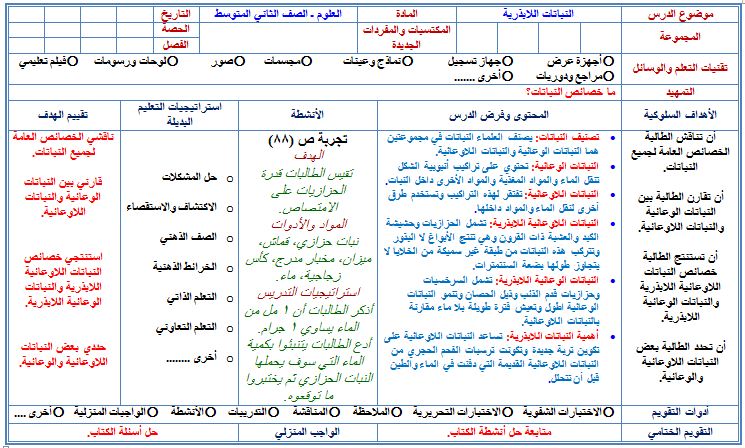 موضوع الدرس
النباتات اللابذرية
المادة
العلوم ـ الصف الثاني المتوسط
التاريخ
المجموعة
المكتسبات والمفردات
الجديدة
الحصة
الفصل
تقنيات التعلم والوسائل
أجهزة عرض
جهاز تسجيل
نماذج وعينات
مجسمات
صور
لوحات ورسومات
فيلم تعليمي
مراجع ودوريات
أخرى .......
التمهيد
ما خصائص النباتات؟
الأهداف السلوكية
المحتوى وفرض الدرس
الأنشطة
استراتيجيات التعليم
البديلة
تقييم الهدف
أن تناقش الطالبة
الخصائص العامة لجميع
النباتات.
أن تقارن الطالبة بين
النباتات الوعائية
والنباتات اللاوعائية.
أن تستنتج الطالبة
خصائص النباتات
اللاوعائية اللابذرية
والنباتات الوعائية
اللابذرية.
أن تحدد الطالبة بعض
النباتات اللاوعائية
والوعائية.
تصنيف النباتات: يصنف العلماء النباتات في مجموعتين
هما النباتات الوعائية والنباتات اللاوعائية.
النباتات الوعائية: تحتوي على تراكيب أنبوبية الشكل
تنقل الماء والمواد المغذية والمواد الأخرى داخل النبات.
النباتات اللاوعائية: تفتقر لهذه التراكيب وتستخدم طرق
أخرى لنقل الماء والمواد داخلها.
النباتات اللاوعائية اللابذرية: تشمل الحزازيات وحشيشة
الكبد والعشبة ذات القرون وهي تنتج الأبواغ لا البذور
وتتركب هذه النباتات من طبقة غير سميكة من الخلايا لا
يتجاوز طولها بضعة السنتمترات.
النباتات الوعائية اللابذرية: تشمل السرخسيات
وحزازيات قدم الذئب وذيل الحصان وتنمو النباتات
الوعائية اطول وتعيش فترة طويلة بلا ماء مقارنة
بالنباتات اللاوعائية.
أهمية النباتات اللابذرية: تساعد النباتات اللاوعائية على
تكوين تربة جديدة وتكونت ترسبات الفحم الحجري من
النباتات اللاوعائية القديمة التي دفنت في الماء والطين
قبل أن تتحلل.
تجربة ص (٨٨)
الهدف
تقيس الطالبات قدرة
الحزازيات على
الامتصاص.
المواد والأدوات
نبات حزازي، قماش،
ميزان، مخبار مدرج، كأس
زجاجية، ماء.
استراتيجيات التدريس
أذكر الطالبات أن ١ مل من
الماء يساوي ١ جرام.
أدع الطالبات يتنبئوا بكمية
الماء التي سوف يحملها
النبات الحزازي ثم يختبروا
ما توقعوه.
حل المشكلات
الاكتشاف والاستقصاء
الصف الذهني
الخرائط الذهنية
التعلم الذاتي
التعلم التعاوني
أخرى ........
ناقشي الخصائص العامة
لجميع النباتات.
قارني بين النباتات
الوعائية والنباتات
اللاوعائية.
استنتجي خصائص
النباتات اللاوعائية
اللابذرية والنباتات
الوعائية اللابذرية.
حددي بعض النباتات
اللاوعائية والوعائية.
أدوات التقويم
الاختبارات الشفوية
الاختبارات التحريرية
الملاحظة
المناقشة
التدريبات
الأنشطة
الواجبات المنزلية
أخرى ....
التقويم الختامي
متابعة حل أنشطة الكتاب.
الواجب المنزلي
حل أسئلة الكتاب.